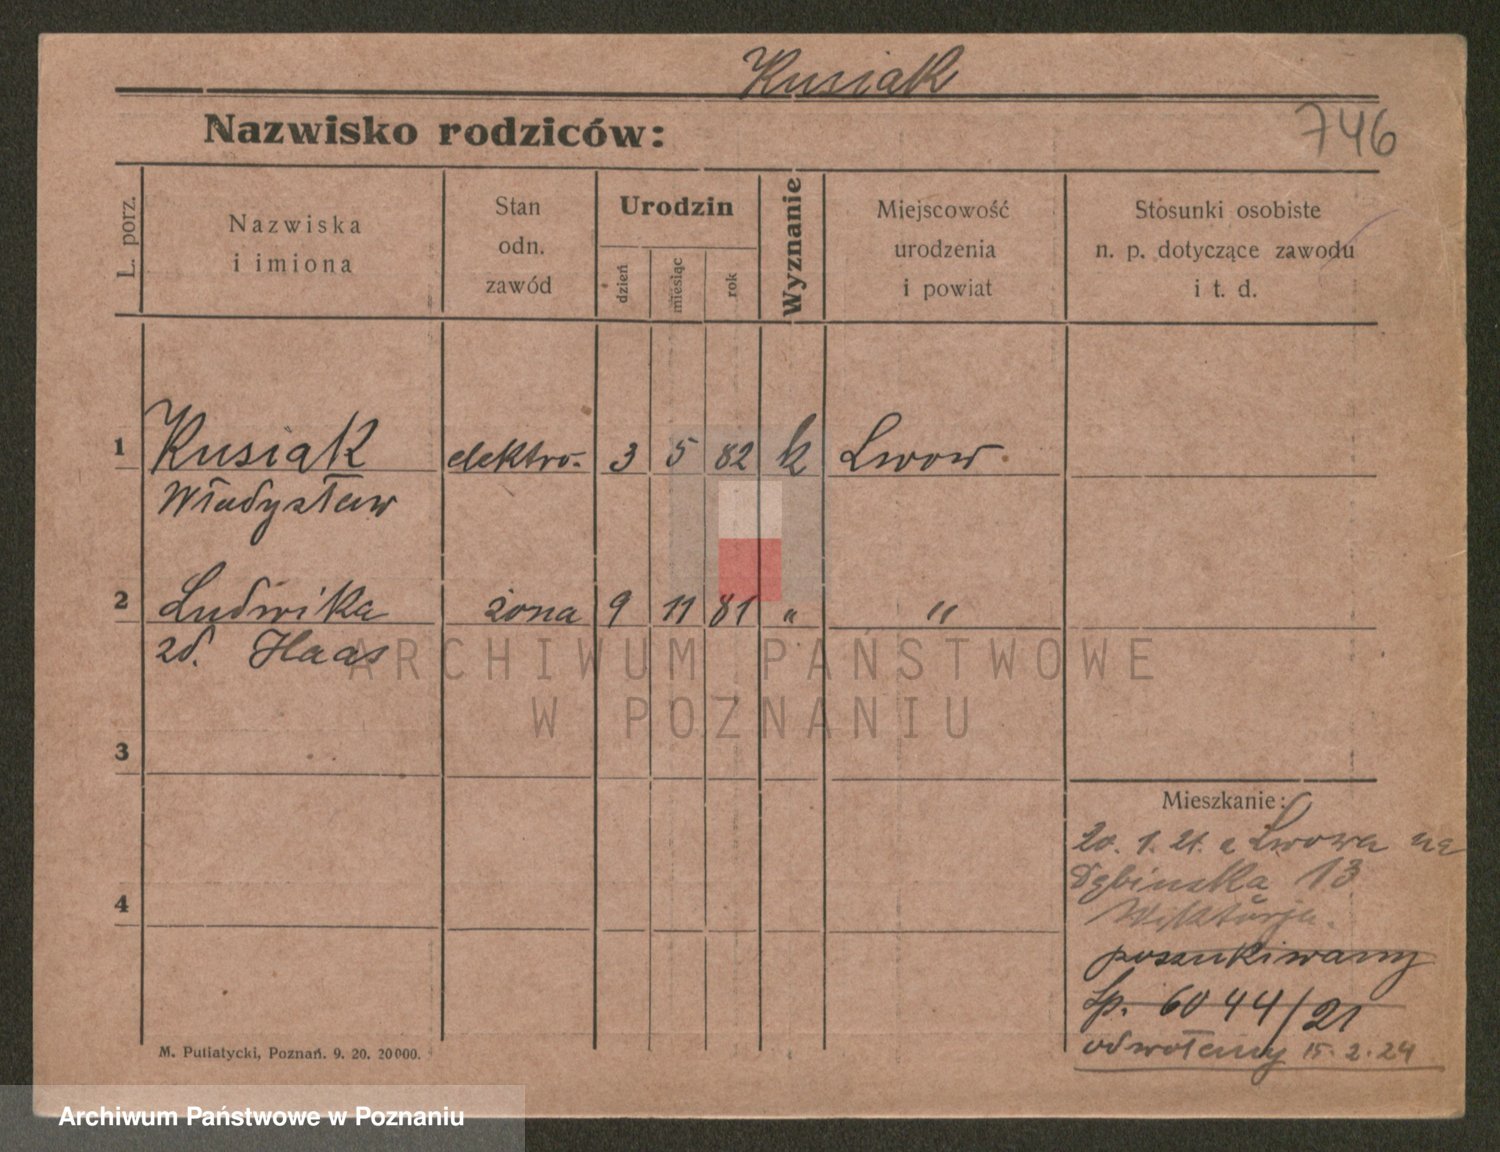 Kusiak
Nazwisko rodziców:
746
L. porz.
Nazwiska
i imiona
Stan
odn.
zawód
Urodzin
dzień
miesiąc
rok
Wyznanie
Miejscowość
urodzenia
i powiat
Stosunki osobiste
n. p. dotyczące zawodu
i t. d.
1 Kusiak elektro. 3 5 82 k Lwow.
Władysław
2 Ludwika żona 9 11 81 „ „
zd. Haas
ARCHIWUM PAŃSTWOWE
W POZNANIU
3
Mieszkanie:
20. 1. 21. z Lwowa na
Dębinska 13
4
Wiktorja.
poszukiwany
Lp. 6044/21
odwołany 15. 2. 24
M. Putiatycki, Poznań. 9. 20. 20000.
Archiwum Państwowe w Poznaniu